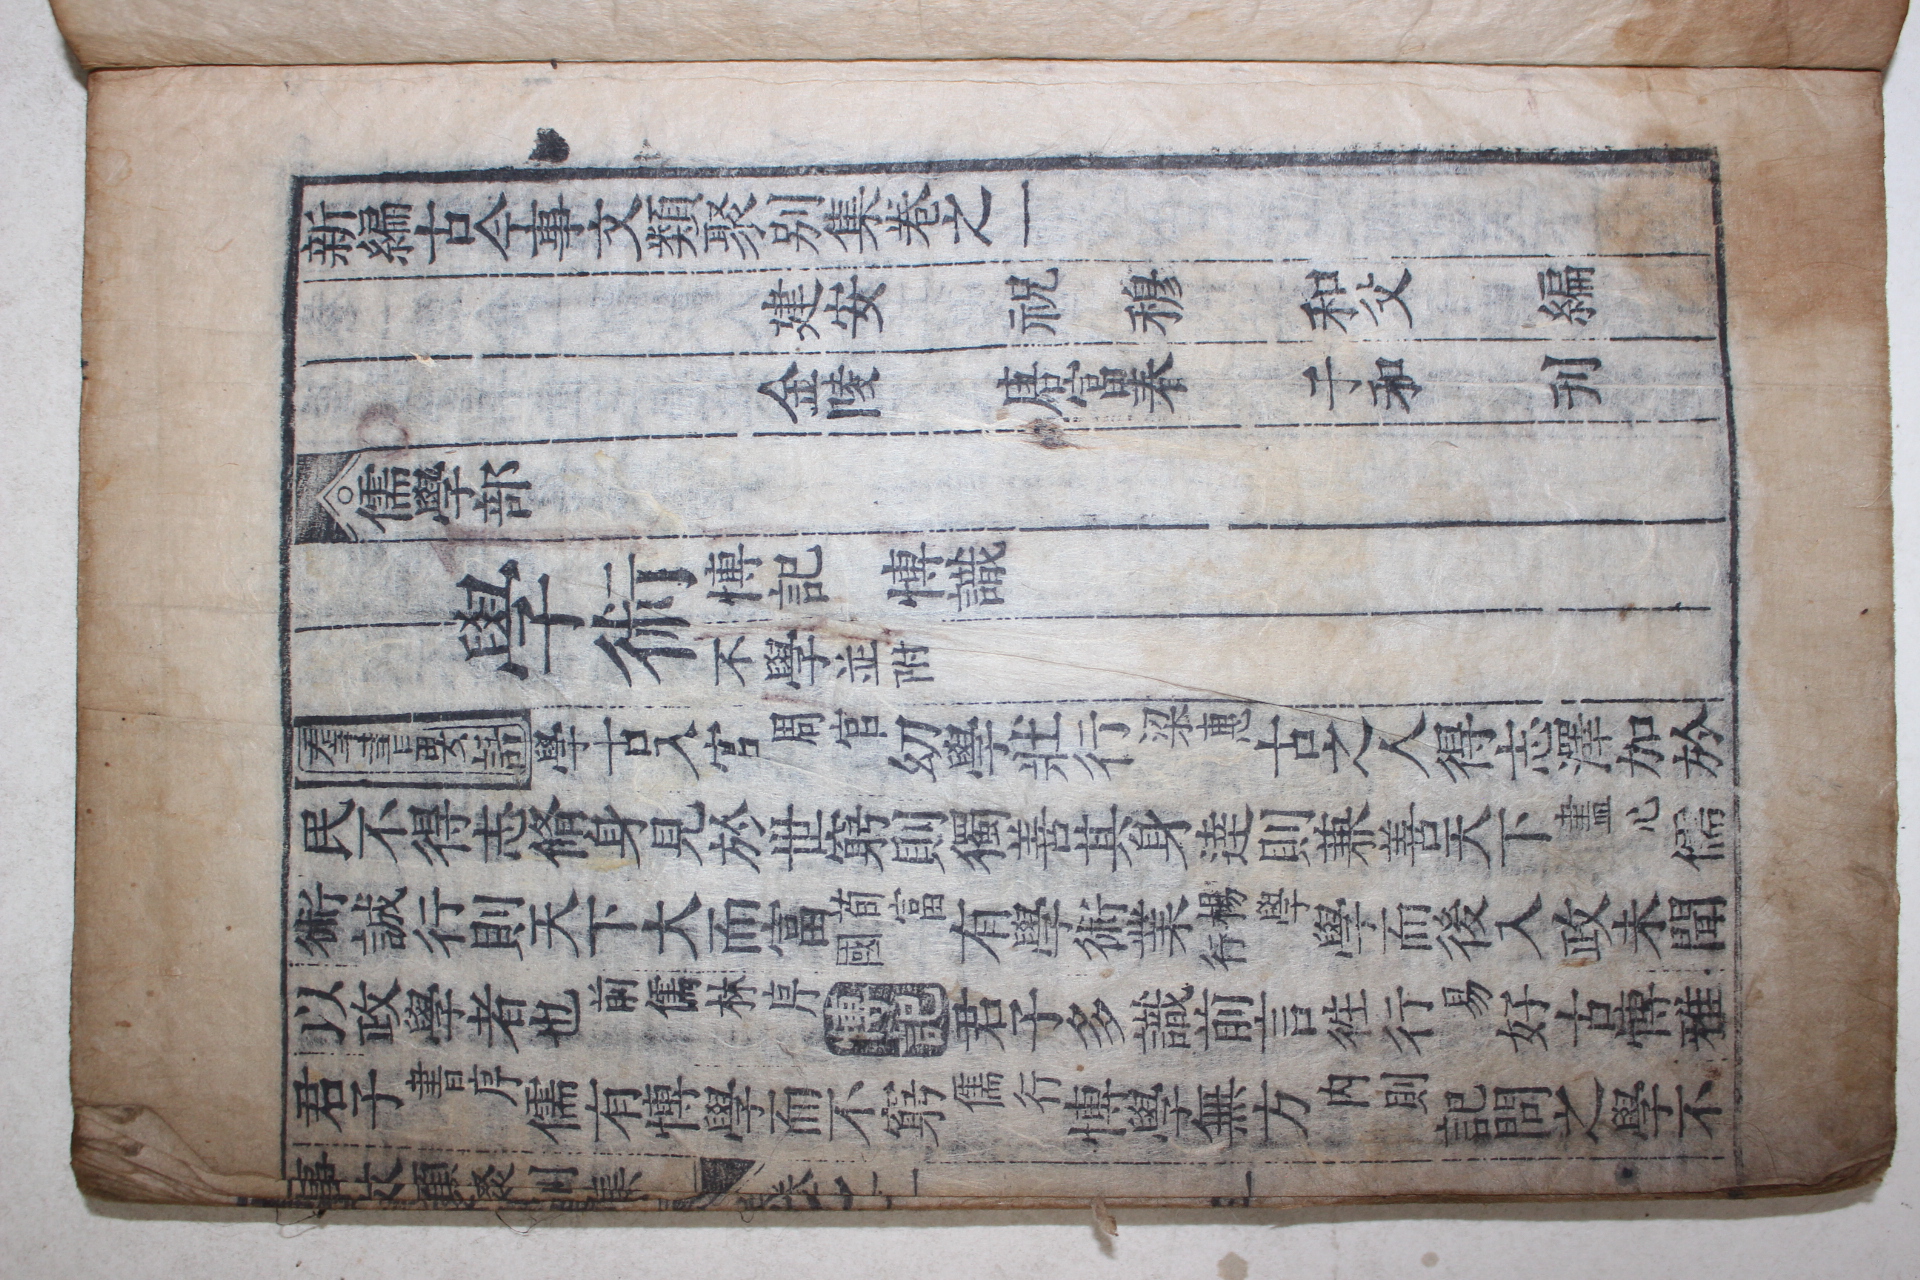 新編古今事文類聚別集卷之一
建安 祝 穆 和父 編
金陵 唐富春 子和 刋
儒學部
學術 博記 博識
不學並附
羣書要語 學古入官 周官 幼學壯行 梁惠 古之人得志澤加於
民不得志脩身見於世窮則獨善其身達則兼善天下 盡心 儒
術誠行則天下大而富 荀富國 有學術業 楊學行 學而後入政未聞
以政學者也 前儒林序 博記 君子多識前言徃行 易 好古博雅
君子 書序 儒有博學而不窮 儒行 博學無方 內則 記問之學不
事文類聚別集 卷之一 一